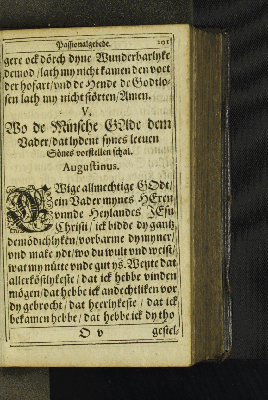 Passionalgebede. 291
gere ock dörch dyne Wunderbarlyke
demod / lath my nicht kamen den voet
der hofart / vnd de Hende de Godtlo-
sen lath my nicht störten / Amen.
V.
Wo de Minsche GAde dem
Vader / dat lydent synes leeuen
Sönes vorstellen schal.
Augustinus.
EWige allmechtige GOdt /
ein Vader mynes HEren
vnnde Heylandes JEsu
Christi / ick bidde dy gantz
demödichlyken / vorbarme dy myner /
vnd make ydt / wo du wult vnd weist /
wat my nütte vnde gut ys. Weyte dat
allerköstlykeste / dat ick hebbe vinden
mögen / dat hebbe ick andechtliken vor
dy gebrocht / dat heerlykeste / dat ick
bekamen hebbe / dat hebbe ick dy tho
O v gestel-